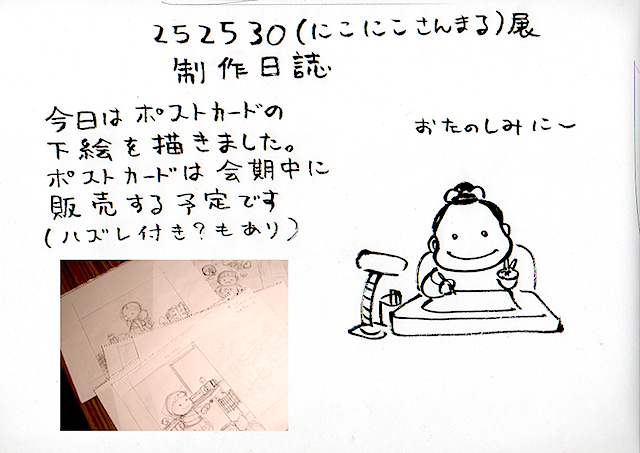 252530(にこにこさんまる)展
制作日誌
今日はポストカードの
下絵を描きました。
ポストカードは会期中に
販売する予定です
(ハズレ付き?もあり)
おたのしみに〜